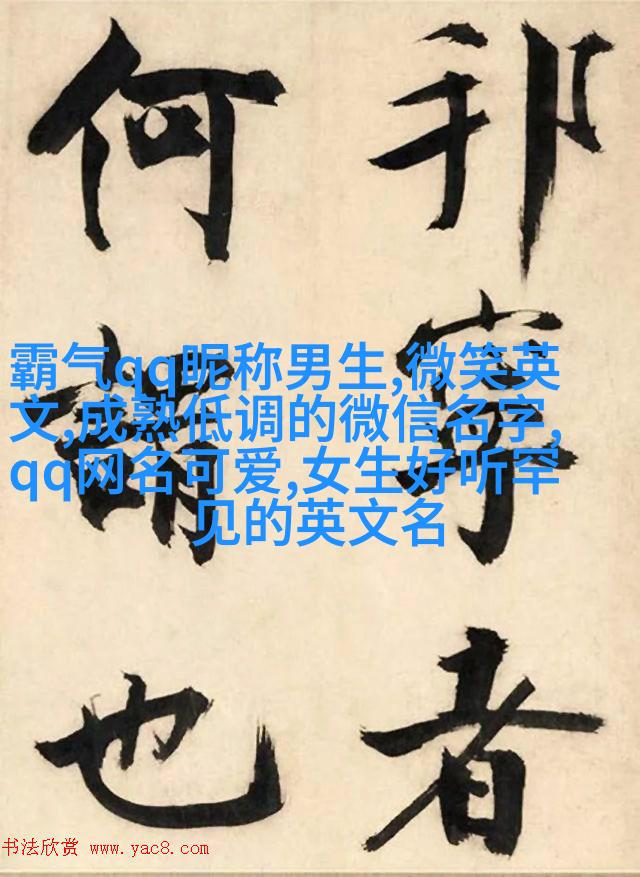 邦寧者
何謂也
霸气qq昵称男生,微笑英
文,成熟低调的微信名字,
qq网名可爱,女生好听罕
见的英文名
书法欣赏 www.yac8.com